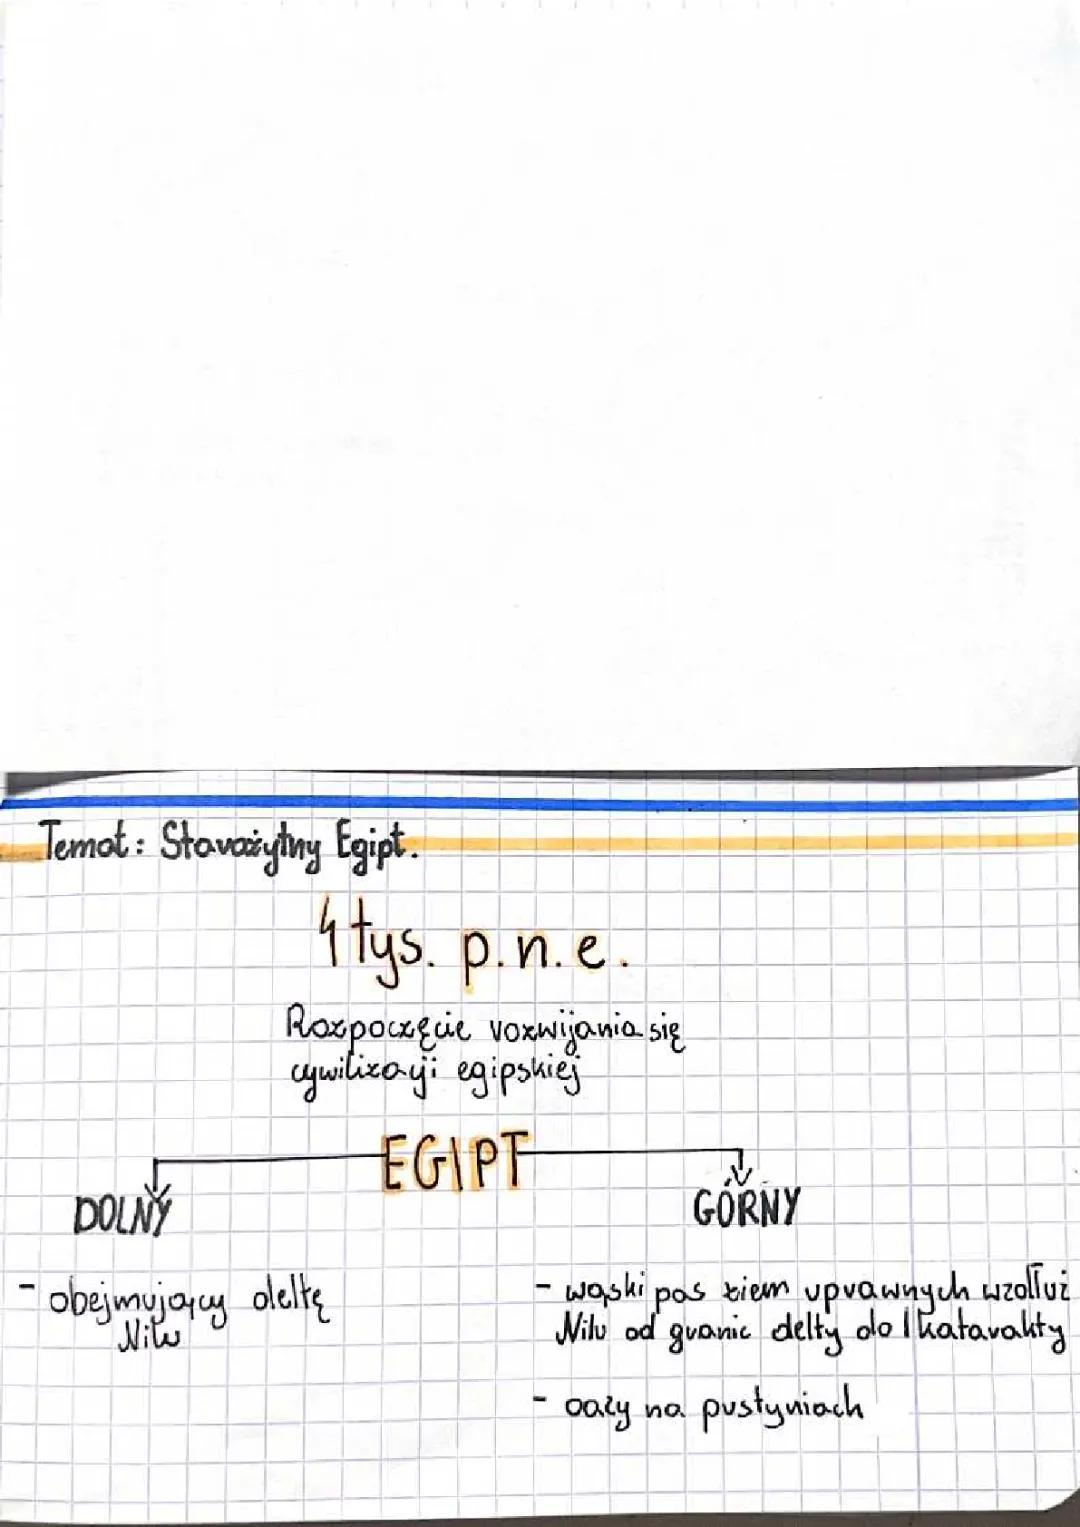 Temat: Starożytny Egipt.
4 tys. p.n.e.
Rozpoczęcie rozwijania się
cywilizacji egipskiej
EGIPT
DOLNY
GÓRNY
- obejmujący deltę
Nilu
- wąski pas ziem uprawnych wzdłuż
Nilu od granic delty do I katarakty
- oazy na pustyniach